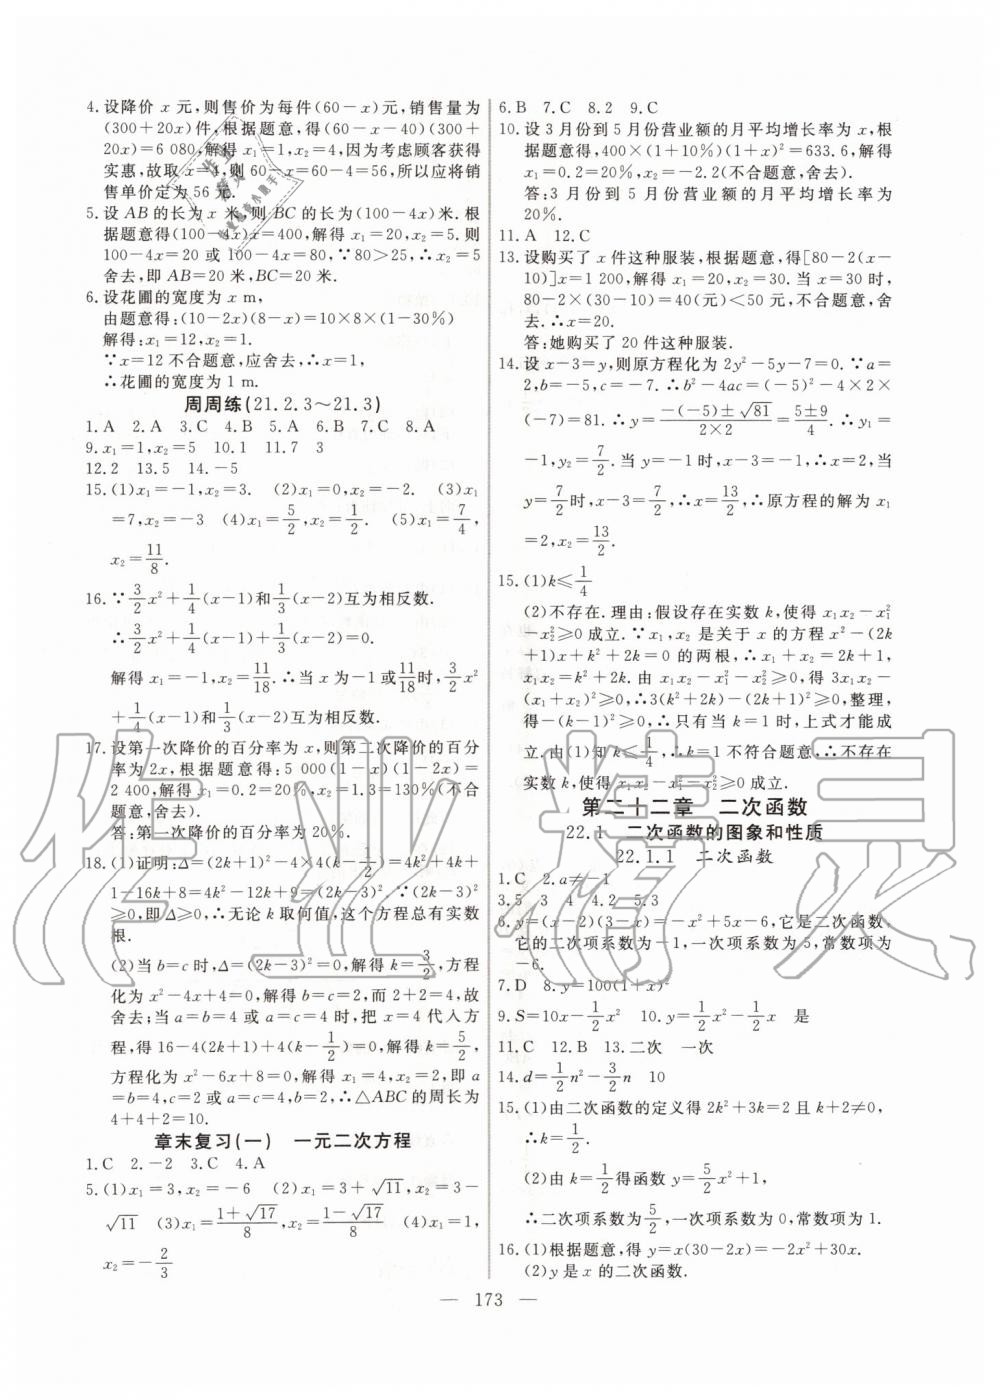 4.设降价 x 元,则售价为每件(60－x)元,销售量为
(300＋20x)件,根据题意,得(60－x－40)(300＋
20x)＝6 080,解得 x₁＝1,x₂＝4,因为考虑顾客获得
实惠,故取 x＝4,则 60－x＝60－4＝56,所以应将销
售单价定为 56 元.
5.设 AB 的长为 x 米,则 BC 的长为(100－4x)米.根
据题意得(100－4x)x＝400,解得 x₁＝20,x₂＝5.则
100－4x＝20 或 100－4x＝80.∵80＞25,∴x₂＝5
舍去,即 AB＝20 米,BC＝20 米.
6.设花圃的宽度为 x m,
由题意得:(10－2x)(8－x)＝10×8×(1－40％)
解得:x₁＝12,x₂＝1.
∵x＝12 不合题意,应舍去,∴x＝1,
∴花圃的宽度为 1 m.
周周练(21.2.3～21.3)
1.A 2.A 3.C 4.B 5.A 6.B 7.C 8.A
9.x₁＝1,x₂＝5 10.1 11.7 3
12.2 13.5 14.－5
15.(1)x₁＝－1,x₂＝3. (2)x₁＝0,x₂＝－2. (3)x₁
＝7,x₂＝－3 (4)x₁＝5/2,x₂＝1/2. (5)x₁＝7/4,
x₂＝11/8.
16.∵3/2x²＋1/4(x－1)和1/3(x－2)互为相反数.
∴3/2x²＋1/4(x－1)＋1/3(x－2)＝0.
解得 x₁＝－1,x₂＝11/18.∴当 x 为－1或11/18时,3/2x²
＋1/4(x－1)和1/3(x－2)互为相反数.
17.设第一次降价的百分率为 x,则第二次降价的百分
率为 2x,根据题意得:5 000(1－x)(1－2x)＝
2 400,解得 x₁＝0.2＝20％,x₂＝1.3＝130％(不合
题意,舍去).
答:第一次降价的百分率为 20％.
18.(1)证明:Δ＝(2k＋1)²－4×4(k－1/2)＝4k²＋4k＋
1－16k＋8＝4k²－12k＋9＝(2k－3)² ∵(2k－3)²
≥0,即 Δ≥0,∴无论 k 取何值,这个方程总有实数
根.
(2)当 b＝c 时,Δ＝(2k－3)²＝0,解得 k＝3/2,方程
化为 x²－4x＋4＝0,解得 b＝c＝2,而 2＋2＝4,故
舍去;当 a＝b＝4 或 a＝c＝4 时,把 x＝4 代入方
程,得 16－4(2k＋1)＋4(k－1/2)＝0,解得 k＝5/2,
方程化为 x²－6x＋8＝0,解得 x₁＝4,x₂＝2,即 a
＝b＝4,c＝2 或 a＝c＝4,b＝2,∴△ABC 的周长为
4＋4＋2＝10.
章末复习(一) 一元二次方程
1.C 2.－2 3.C 4.A
5.(1)x₁＝3,x₂＝－6 (2)x₁＝3＋√11,x₂＝3－
√11 (3)x₁＝(1＋√17)/8,x₂＝(1－√17)/8 (4)x₁＝1,
x₂＝－2/3
6.B 7.C 8.2 9.C
10.设 3 月份到 5 月份营业额的月平均增长率为 x,根
据题意得,400×(1＋10％)(1＋x)²＝633.6,解得
x₁＝0.2＝20％,x₂＝－2.2(不合题意,舍去).
答:3 月份到 5 月份营业额的月平均增长率为
20％.
11.A 12.C
13.设购买了 x 件这种服装,根据题意,得[80－2(x－
10)]x＝1 200,解得 x₁＝20,x₂＝30.当 x＝30 时,
80－2×(30－10)＝40(元)＜50 元,不合题意,舍
去.∴x＝20.
答:她购买了 20 件这种服装.
14.设 x－3＝y,则原方程化为 2y²－5y－7＝0.∵a＝
2,b＝－5,c＝－7.∴b²－4ac＝(－5)²－4×2×
(－7)＝81.∴y＝(－(－5)±√81)/(2×2)＝(5±9)/4.∴y₁＝
－1,y₂＝7/2.当 y＝－1 时,x－3＝－1,∴x＝2;当
y＝7/2时,x－3＝7/2,∴x＝13/2,∴原方程的解为 x₁
＝2,x₂＝13/2.
15.(1)k≤1/4
(2)不存在.理由:假设存在实数 k,使得 x₁x₂－x₁²
－x₂²≥0 成立.∵x₁,x₂ 是关于 x 的方程 x²－(2k
＋1)x＋k²＋2k＝0 的两根,∴x₁＋x₂＝2k＋1,
x₁x₂＝k²＋2k.由 x₁x₂－x₁²－x₂²≥0,得 3x₁x₂－
(x₁＋x₂)²≥0,∴3(k²＋2k)－(2k＋1)²≥0,整理,
得－(k－1)²≥0,∴只有当 k＝1 时,上式才能成
立.由(1)知 k≤1/4,∴k＝1 不符合题意,∴不存在
实数 k,使得 x₁x₂－x₁²－x₂²≥0 成立.
第二十二章 二次函数
22.1 二次函数的图象和性质
22.1.1 二次函数
1.C 2.a≠－1
3.5 3 4 4.2 5.3
6.y＝(x－2)(3－x)＝－x²＋5x－6,它是二次函数,
它的二次项系数为－1,一次项系数为 5,常数项为
－6.
7.D 8.y＝100(1＋x)²
9.S＝10x－1/2x² 10.y＝1/2x²－1/2x 是
11.C 12.B 13.二次 一次
14.d＝1/2n²－3/2n 10
15.(1)由二次函数的定义得 2k²＋3k＝2 且 k≠0,
∴k＝1/2.
(2)由 k＝1/2得函数 y＝5/2x²＋1,
∴二次项系数为5/2,一次项系数为 0,常数项为 1.
16.(1)根据题意,得 y＝x(30－2x)＝－2x²＋30x.
(2)y 是 x 的二次函数.
— 173 —
作业精灵